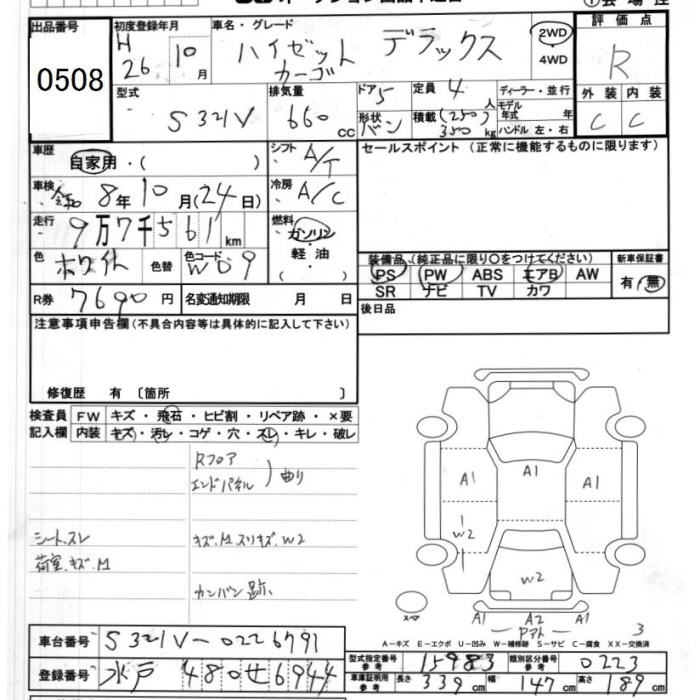 出品番号
0508
初度登録年月
H 26 10 月
車名・グレード
ハイゼット カーゴ デラックス
2WD
4WD
評価点
R
外装 内装
C C
型式
S321V
排気量
660 cc
ドア 5
形状 バン
定員 4 人
積載 (250) 350 kg
ディーラー・並行
モデル年式 年
ハンドル 左・右
車歴
自家用・( )
シフト A/T
セールスポイント (正常に機能するものに限ります)
車検
令和 8年10月(24日)
冷房 A/C
走行
9万7千561 km
燃料
ガソリン
軽・油
( )
色
ホワイト
色替
色コード
W09
装備品 (純正品に限り○をつけてください)
新車保証書
PS PW ABS エアB AW
有・無
SR ナビ TV カワ
R券 7690円
名変通知期限 月 日
後日品
注意事項申告欄(不具合内容等は具体的に記入して下さい)
修復歴 有 〔箇所 〕
検査員 FW キズ・飛石・ヒビ割・リペア跡・×要
記入欄 内装 キズ・汚レ・コゲ・穴・スレ・キレ・破レ
Rフロア
エンドパネル
曲り
シート.スレ
荷室.キズ.M
キズ.M.スリキズ.W2
カンバン跡
A1
A1
A1
A1
W2
W2
スペア
A1 A2 A1
Pアト
3
A-キズ E-エクボ U-凹み W-補修跡 S-サビ C-腐食 XX-交換済
車台番号 S321V-0226791
登録番号 水戸 480せ6944
型式指定番号 参考 15983
類別区分番号 参考 0223
車庫証明用 参考 長さ 339cm 幅 147cm 高さ 189cm